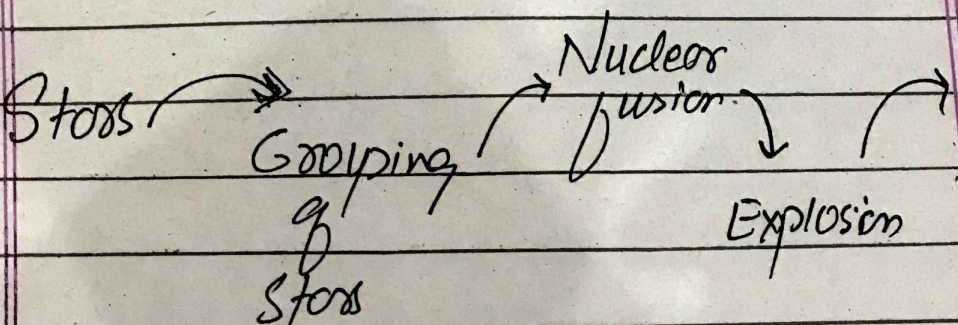 Stars
Grouping
of
Stars
Nuclear
fusion.
Explosion